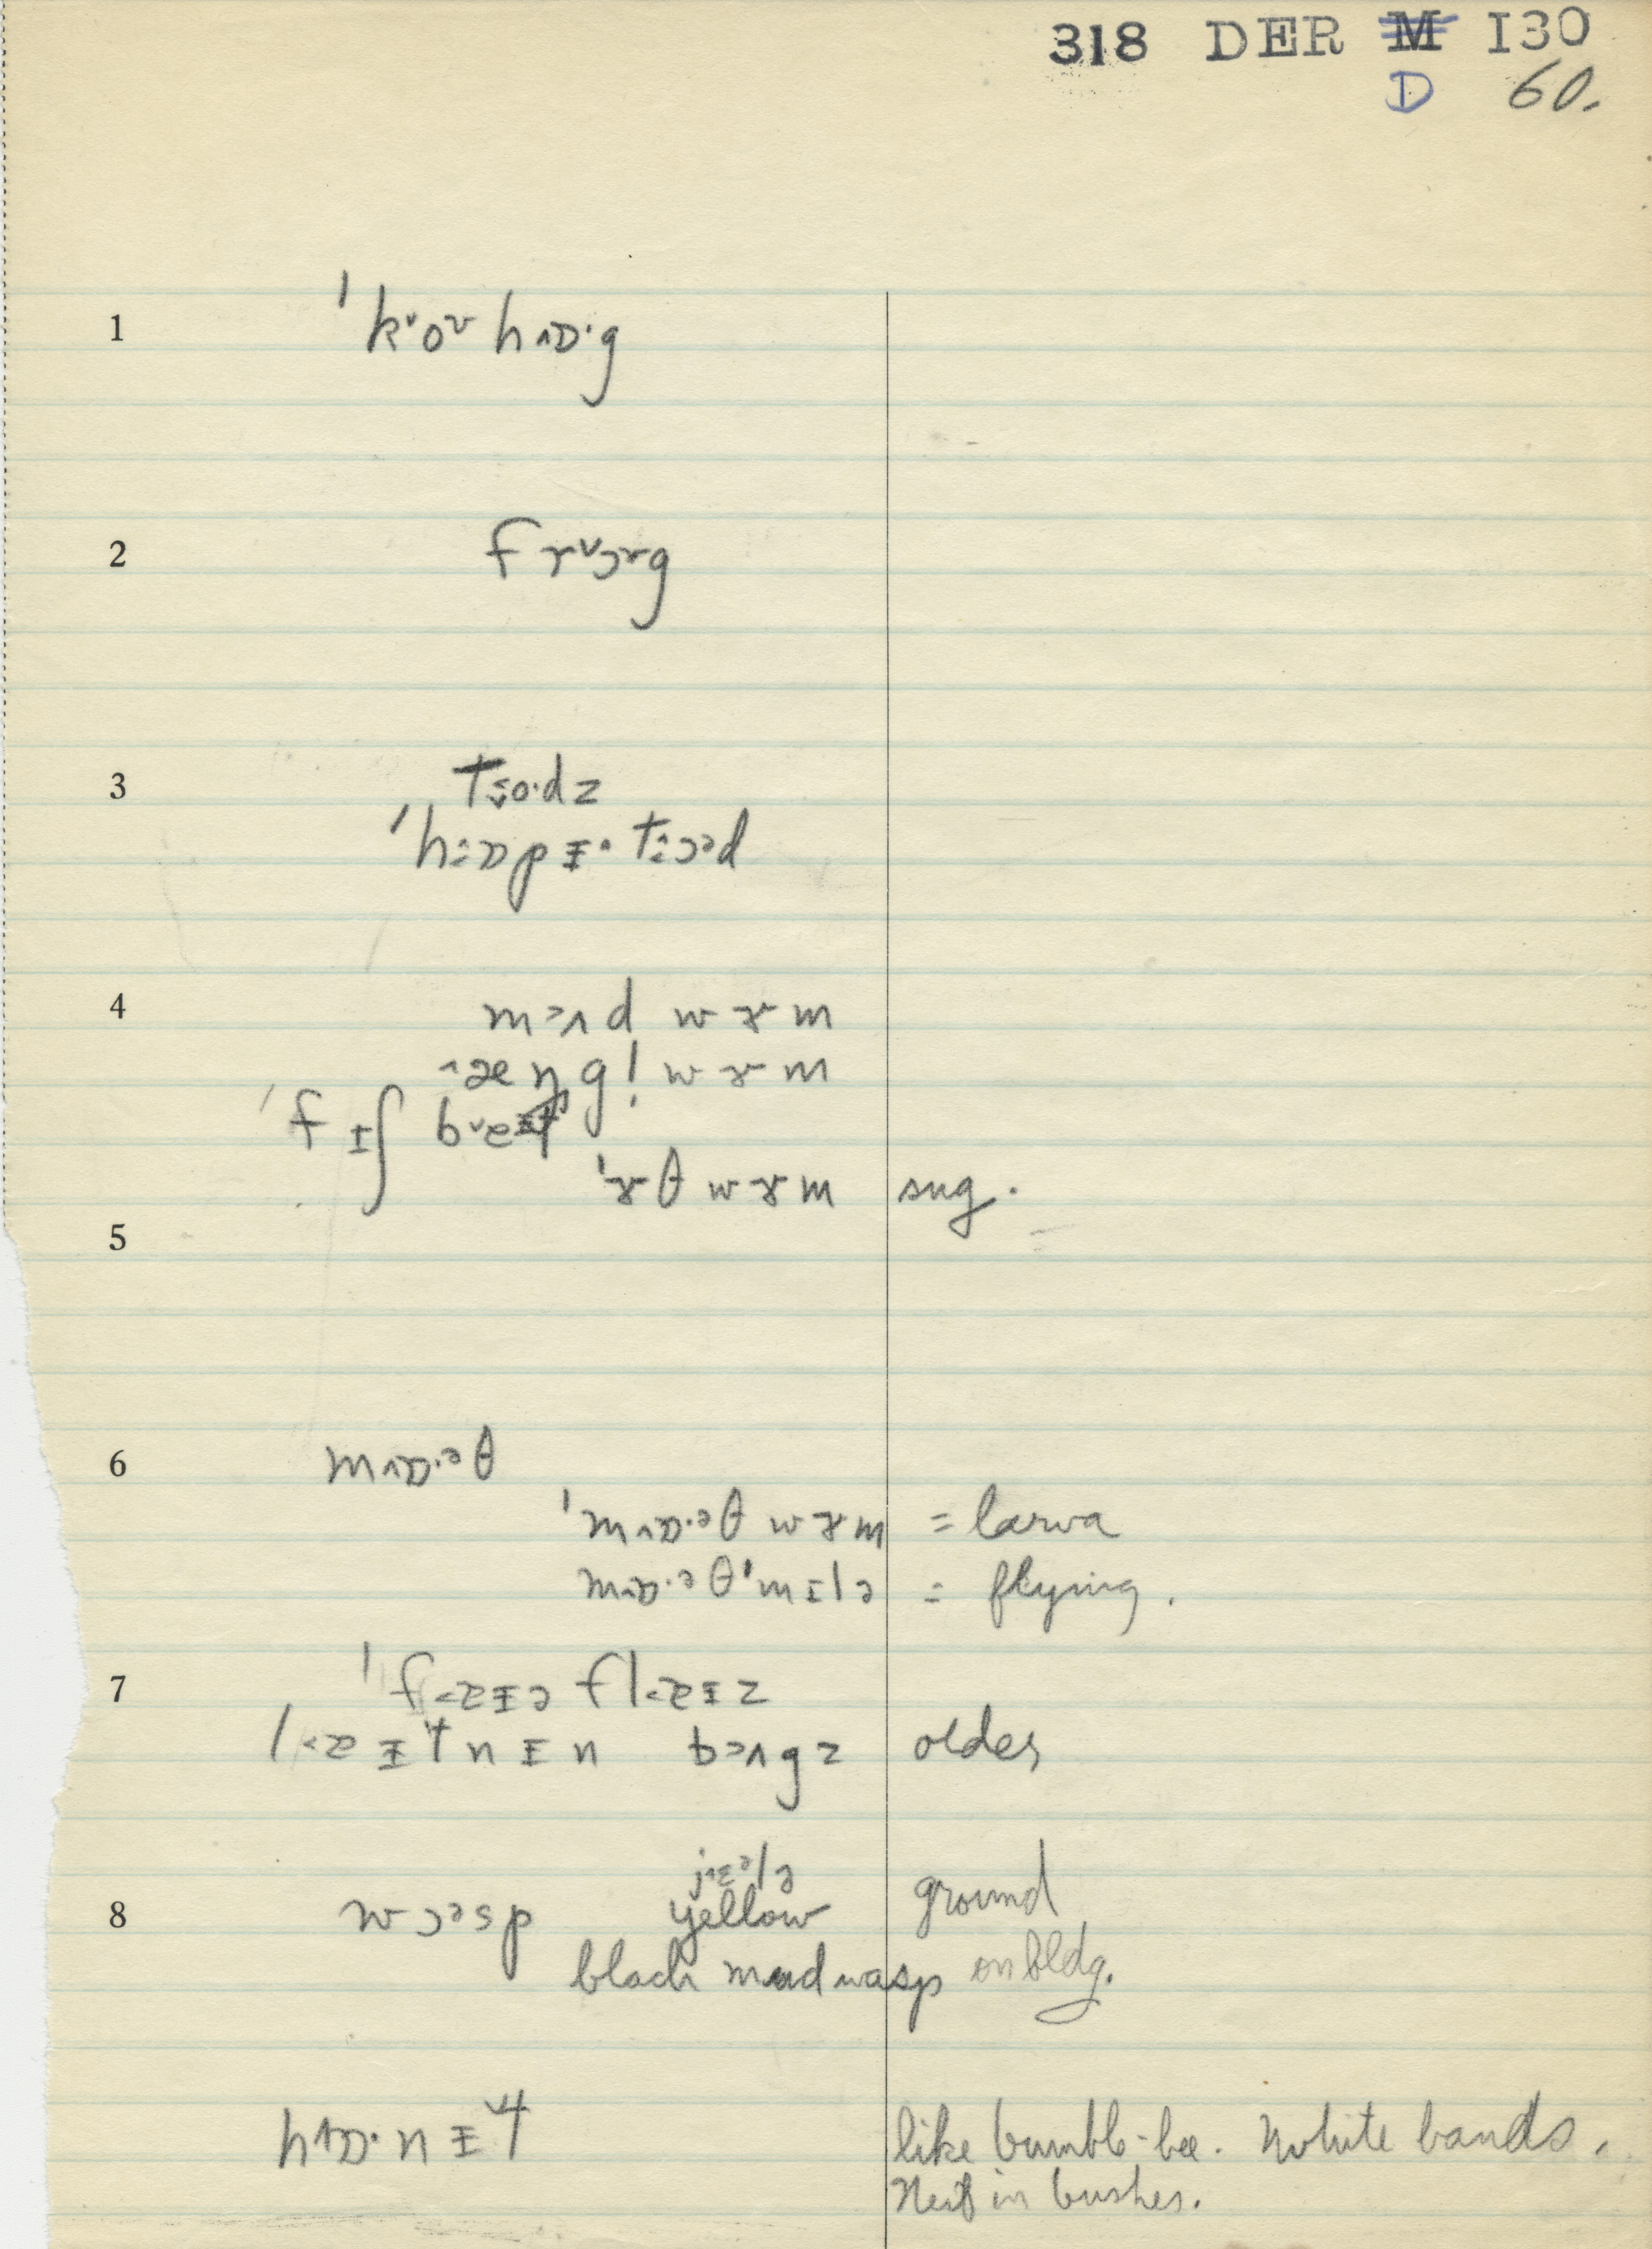 318 DER M I30
D 60.
1 ˈk˅oᵛ hʌɒ·g
2 frᵛɔɤg
3 tso·dz
ˈhɒpɪ· tɔᵊd
4 m>ʌd wɤm
^æŋgl̩ wɤm
ˈfɪʃ b˅eɪt
ˈɤθ wɤm sug.
5
6 m^ɒ·ᵊθ
ˈm^ɒ·ᵊθ wɤm = larva
m^ɒ·ᵊθˈmɪlə = flying.
7 ˈf<aɪə fl<aɪz
l<aɪtnɪn b>ʌgz older
8 wɔᵊsp j^ɛᵊlə ground
yellow
black mud wasp on bldg.
h^ɒ·nɪt like bumble-bee. White bands.
Nest in bushes.